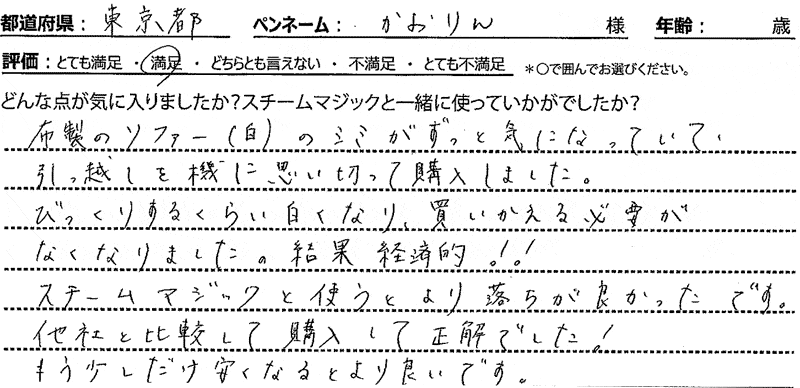 都道府県：東京都 ペンネーム：かおりん 様 年齢： 歳
評価：とても満足 ・ 満足 ・ どちらとも言えない ・ 不満足 ・ とても不満足 ＊○で囲んでお選びください。
どんな点が気に入りましたか?スチームマジックと一緒に使っていかがでしたか?
布製のソファー(白)のシミがずっと気になっていて、
引っ越しを機に思い切って購入しました。
びっくりするくらい白くなり、買いかえる必要が
なくなりました。結果 経済的!!
スチームマジックと使うとより落ちが良かったです。
他社と比較して購入して正解でした!
もう少しだけ安くなるとより良いです。